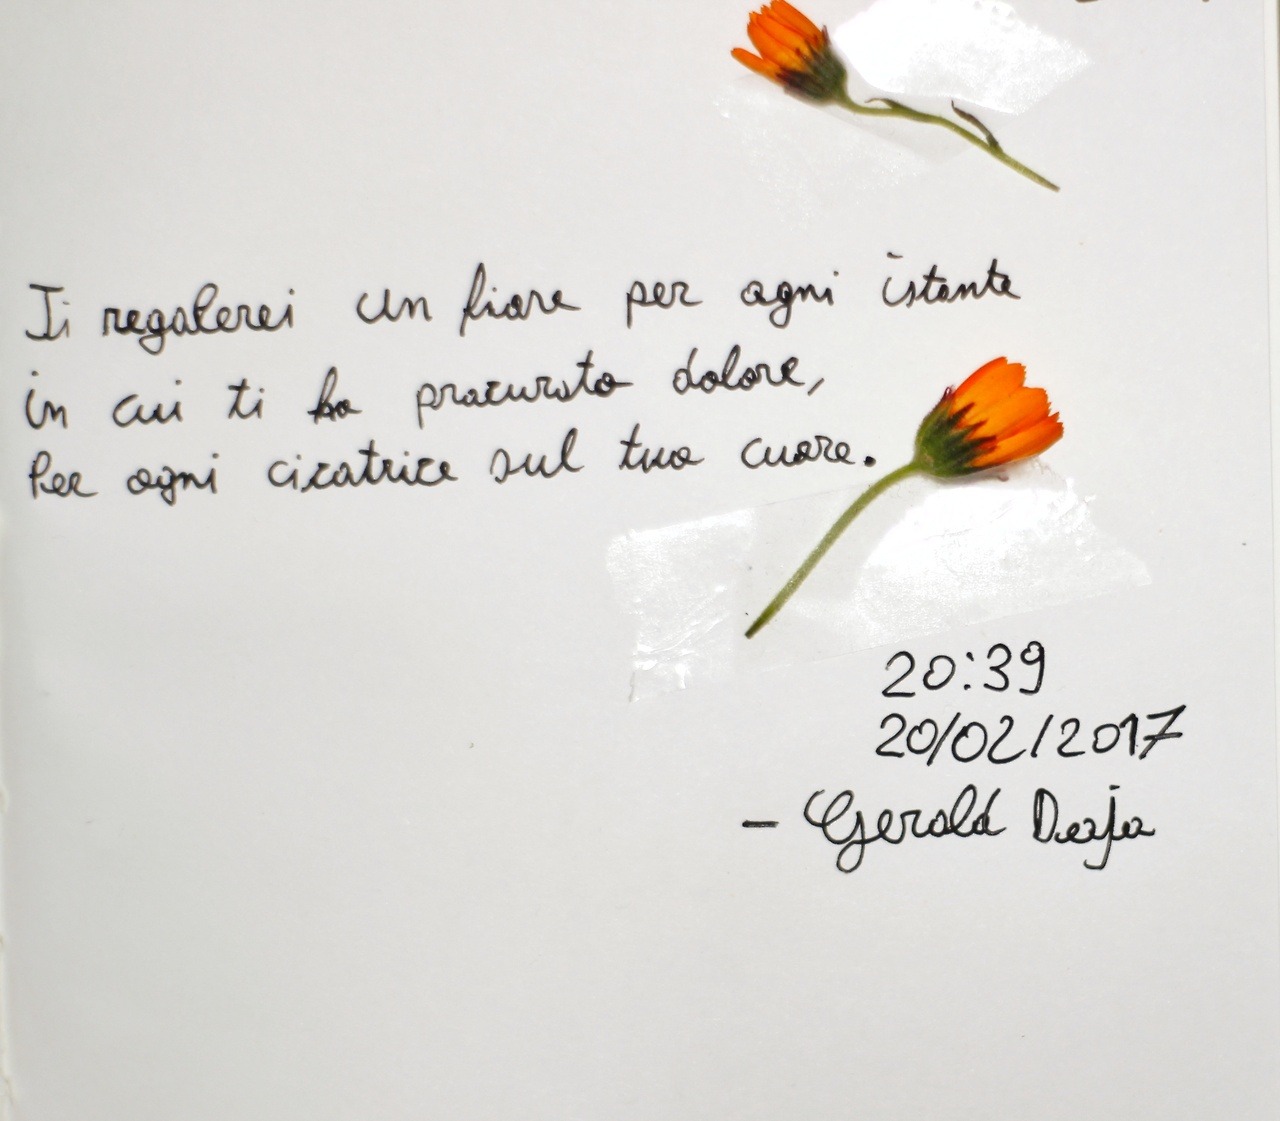 Ti regalerei un fiore per ogni istante
in cui ti ho procurato dolore,
Per ogni cicatrice sul tuo cuore.
20:39
20/02/2017
- Gerald Deja